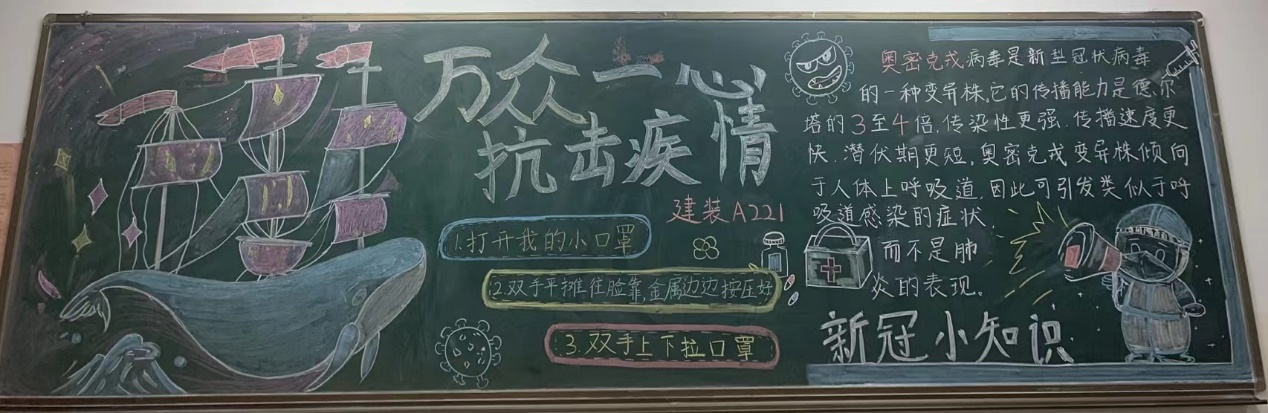 万众一心
抗击疾情
建装A221
1.打开我的小口罩
2.双手平摊住脸靠,金属边边按压好
3.双手上下拉口罩
奥密克戎病毒是新型冠状病毒
的一种变异株,它的传播能力是德尔
塔的3至4倍,传染性更强.传播速度更
快.潜伏期更短,奥密克戎变异株倾向
于人体上呼吸道,因此可引发类似于呼
吸道感染的症状.
而不是肺
炎的表现。
新冠小知识